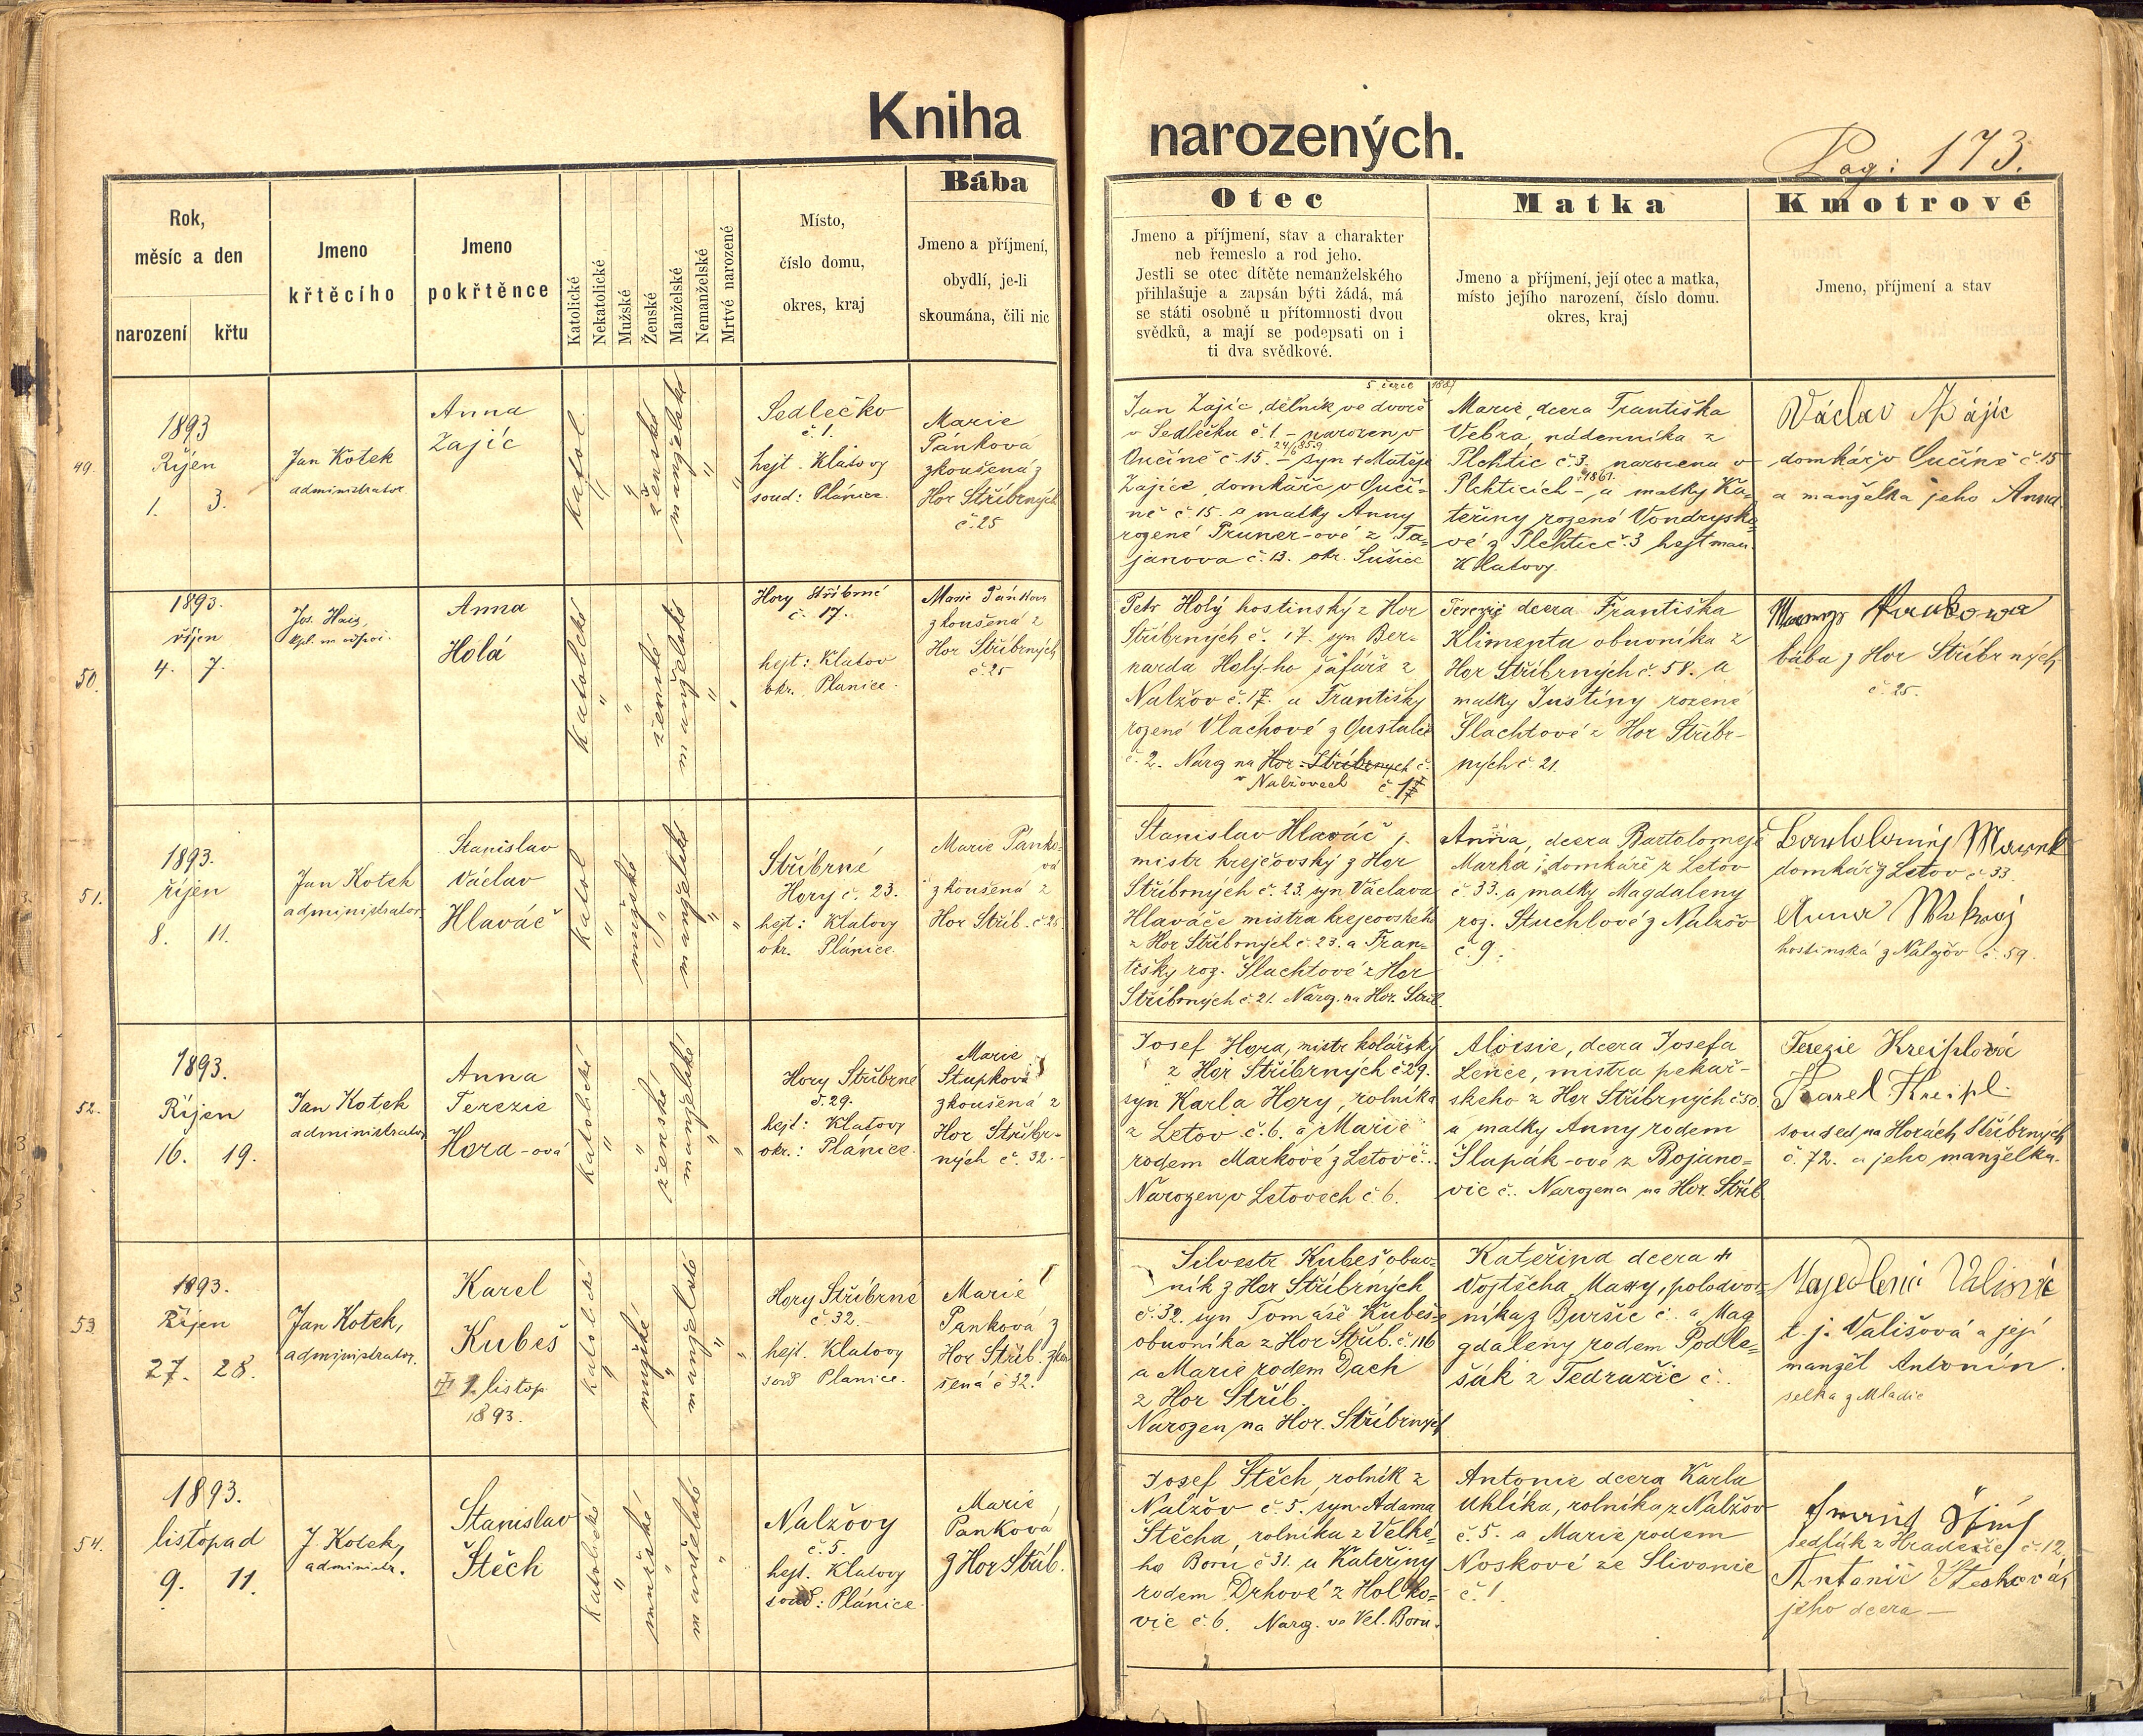 Kniha
narozených.
Pag: 173.
Rok,
měsíc a den
narození
křtu
Jmeno
křtěcího
Jmeno
pokřtěnce
Katolické
Nekatolické
Mužské
Ženské
Manželské
Nemanželské
Mrtvé narozené
Místo,
číslo domu,
okres, kraj
Bába
Jmeno a příjmení,
obydlí, je-li
skoumána, čili nic
Otec
Jmeno a příjmení, stav a charakter
neb řemeslo a rod jeho.
Jestli se otec dítěte nemanželského
přihlašuje a zapsán býti žádá, má
se státi osobně u přítomnosti dvou
svědků, a mají se podepsati on i
ti dva svědkové.
Matka
Jmeno a příjmení, její otec a matka,
místo jejího narození, číslo domu.
okres, kraj
Kmotrové
Jmeno, příjmení a stav
49.
1893
Říjen
1. 3.
Jan Kotek
administrator
Anna
Zajíc
katol.
"
"
ženské
manželské
"
"
Sedlečko
č. 1.
hejt. Klatovy
soud: Plánice.
Marie
Pánková
zkoušená z
Hor Stříbrných
č. 25
5. červe 1887
Jan Zajíc, dělník ve dvoře
v Sedlečku č. 1. - narozen v
24/6 859
Čučíně č. 15. - syn + Matěje
Zajíce, domkáře v Čučí-
ně č. 15. a matky Anny
rozené Pruner-ové z Ta-
janova č. 13. okr. Sušice
Marie, dcera Františka
Vebra, nádenníka z
Plchtic č. 3, narozena v
1861.
Plchticích - a matky Ka-
teřiny rozené Vondrysko-
vé z Plchtic č. 3 hejtman.
Klatovy.
Václav Zájíc
domkář v Čučíně č. 15
a manželka jeho Anna.
50.
1893.
říjen
4. 7.
Jos. Hais,
Anna
Holá
Katolické
"
"
ženské
manželské
"
"
Hory Stříbrné
č. 17.
hejt: Klatov
okr. Planice.
Marie Pánkova
zkoušená z
Hor Stříbrných
č. 25
Petr Holý hostinský z Hor
Stříbrných č. 17. syn Ber-
narda Holý-ho šafáře z
Nalžov č. 17. a Františky
rozené Vlachové z Čustalic
č. 2. Naroz na Hor. Stříbrných č.
v Nalžovech č. 17
Terezie dcera Františka
Klimenta obuvníka z
Hor Stříbrných č. 58. a
matky Justiny rozené
Šlachtové z Hor Stříbr-
ných č. 21.
bába z Hor Stříbrných
č. 25.
51.
1893.
říjen
8. 11.
Jan Kotek
administrator.
Stanislav
Václav
Hlaváč
katol.
"
mužské
"
manželské
"
"
Stříbrné
Hory č. 23.
hejt: Klatovy
okr. Plánice.
Marie Pánko-
vá
zkoušená z
Hor Stříb. č 25.
Stanislav Hlaváč,
mistr krejčovský z Hor
Stříbrných č. 23. syn Václava
Hlaváče mistra krejcovského
z Hor Stříbrných č. 23. a Fran-
tišky roz. Šlachtové z Hor
Stříbrných č. 21. Naroz. na Hor. Stříb.
Anna, dcera Bartoloměje
Marka, domkáře z Letov
č 33. a matky Magdaleny
roz. Stuchlové z Nalžov
č. 9.
domkář z Letov č 33.
hostinská z Nalžov č. 59.
52.
1893.
Říjen
16. 19.
Jan Kotek
administrator
Anna
Terezie
Hora-ová
Katolické
"
"
ženské
manželské
"
"
Hory Stříbrné
č. 29.
hejt: Klatovy
okr.: Plánice.
Marie
Stupková
zkoušená z
Hor Stříbr-
ných č. 32.-
Josef Hora, mistr kolářský
z Hor Stříbrných č 29.
syn Karla Hory, rolníka
z Letov č. 6. a Marie
rodem Markové z Letov č..
Narozen v Letovech č. 6.
Aloisie, dcera Josefa
Lence, mistra pekař-
ského z Hor Stříbrných č. 50
a matky Anny rodem
Šlupák-ové z Bojano-
vic č.. Narozena na Hor. Stříb
Terezie Kreiplová
Karel Kreipl
soused na Horách Stříbrných
č. 72. a jeho manželka.
53.
1893.
Říjen
27. 28.
Jan Kotek,
administrator.
Karel
Kubeš
1. listop.
1893.
Katolické
"
mužské
"
manželské
"
"
Hory Stříbrné
č. 32.
hejt. Klatovy
soud Planice.
Marie
Panková z
Hor Stříb. zkou
šená č 32.
Silvestr Kubeš obuv-
ník z Hor Stříbrných
č. 32. syn Tomáše Kubeše
obuvníka z Hor Stříb. č. 116
a Marie rodem Dach
z Hor Stříb.
Narozen na Hor. Stříbrných
Kateřina dcera +
Vojtěcha Maxy, polodvor-
níka z Buršic č.. a Mag
gdaleny rodem Podle-
šák z Tedražic č..
t. j. Vališová a její
manžel Antonín.
selka z Mladic
54.
1893.
listopad
9. 11.
J. Kotek,
administr.
Stanislav
Štěch
Katolické
"
mužské
"
manželské
"
Nalžovy
č. 5.
hejt. Klatovy
soud: Plánice.
Marie
Panková
z Hor Stříb.
Josef Štěch, rolník z
Nalžov č 5. syn Adama
Štěcha, rolníka z Velké-
ho Boru č 31. a Kateřiny
rodem Drhové z Holko-
vic č. 6. Naroz. ve Vel. Boru.
Antonie dcera Karla
Uhlíka, rolníka z Nalžov
č. 5. a Marie rodem
Noskové ze Slivonic
č. 1.
sedlák z Hradešic č. 12.
Antonie Štechová,
jeho dcera -